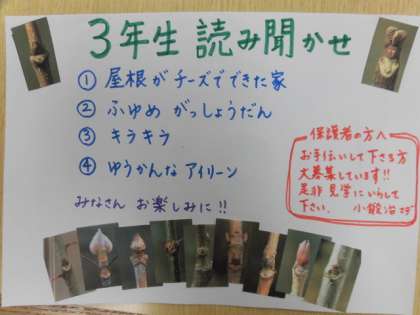 3年生 読み聞かせ
① 屋根がチーズでできた家
② ふゆめ がっしょうだん
③ キラキラ
④ ゆうかんな アイリーン
みなさん お楽しみに!!
保護者の方へ
お手伝いして下さる方
大募集しています!!
是非 見学にいらして
下さい. 小鍛治